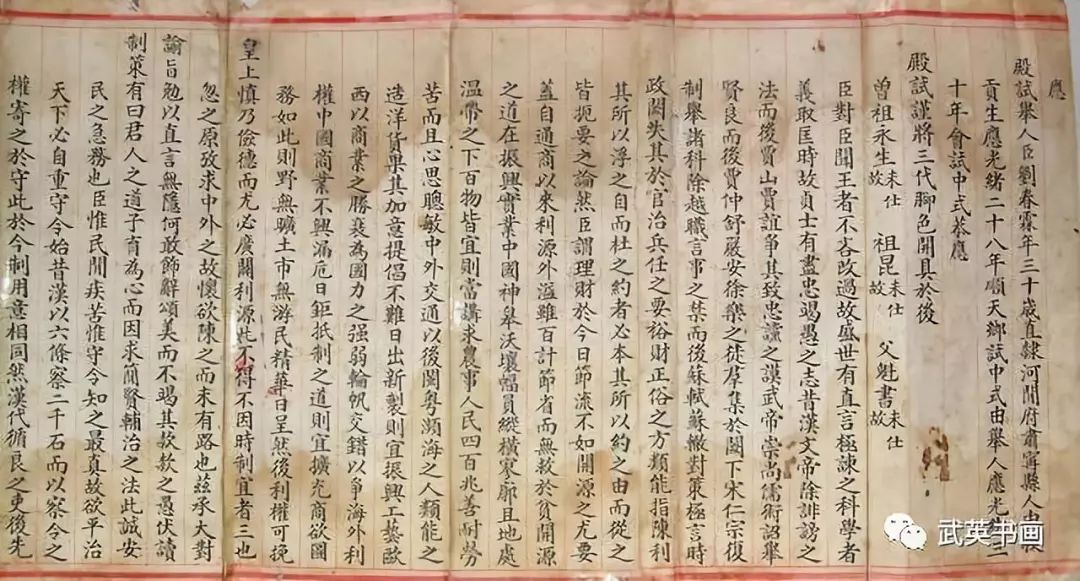 應
殿試舉人臣劉春霖年三十歲直隸河間府肅寧縣人由
貢生應光緒二十八年順天鄉試中式由舉人應光緒三
十年會試中式恭應
殿試謹將三代腳色開具於後
曾祖永生未仕故 祖昆未仕故 父魁書未仕故
臣對臣聞王者不吝改過故盛世有直言極諫之科學者
義取匡時故貞士有盡忠竭愚之志昔漢文帝除誹謗之
法而後賈山賈誼爭其致忠讜之謨武帝崇尚儒術詔舉
賢良而後賈仲舒嚴安徐樂之徒羣集於闕下宋仁宗復
制舉諸科除越職言事之禁而後蘇軾蘇轍對策極言時
政闕失其於官治兵任之要裕財正俗之方類能指陳利
其所以浮之自而杜之約者必本其所以約之由而從之
皆扼要之論然臣謂理財於今日節流不如開源之尤要
蓋自通商以來利源外溢雖百計節省而無救於貧開源
之道在振興實業中國神臯沃壤幅員縱橫寥廓且地處
溫帶之下百物皆宜則當講求農事人民四百兆善耐勞
苦而且心思聰敏中外交通以後閩粵瀕海之人類能之
造洋貨果其加意提倡不難日出新製則宜振興工藝歐
西以商業之勝衰為國力之强弱輪帆交錯以爭海外利
權中國商業不興漏卮日鉅抵制之道則宜擴充商欲圖
務如此則野無曠土市無游民精華日呈然後利權可挽
皇上慎乃儉德而尤必廣闢利源此不得不因時制宜者三也
忽之原攷求中外之故懷欲陳之而未有路也茲承大對
諭旨勉以直言無隱何敢飾辭頌美而不竭其款款之愚伏讀
制策有曰君人之道子育為心而因求簡賢輔治之法此誠安
民之急務也臣惟民間疾苦惟守令知之最真故欲平治
天下必自重守令始昔漢以六條察二千石而以察令之
權寄之於守此於今制用意相同然漢代循良之吏後先
武英书画